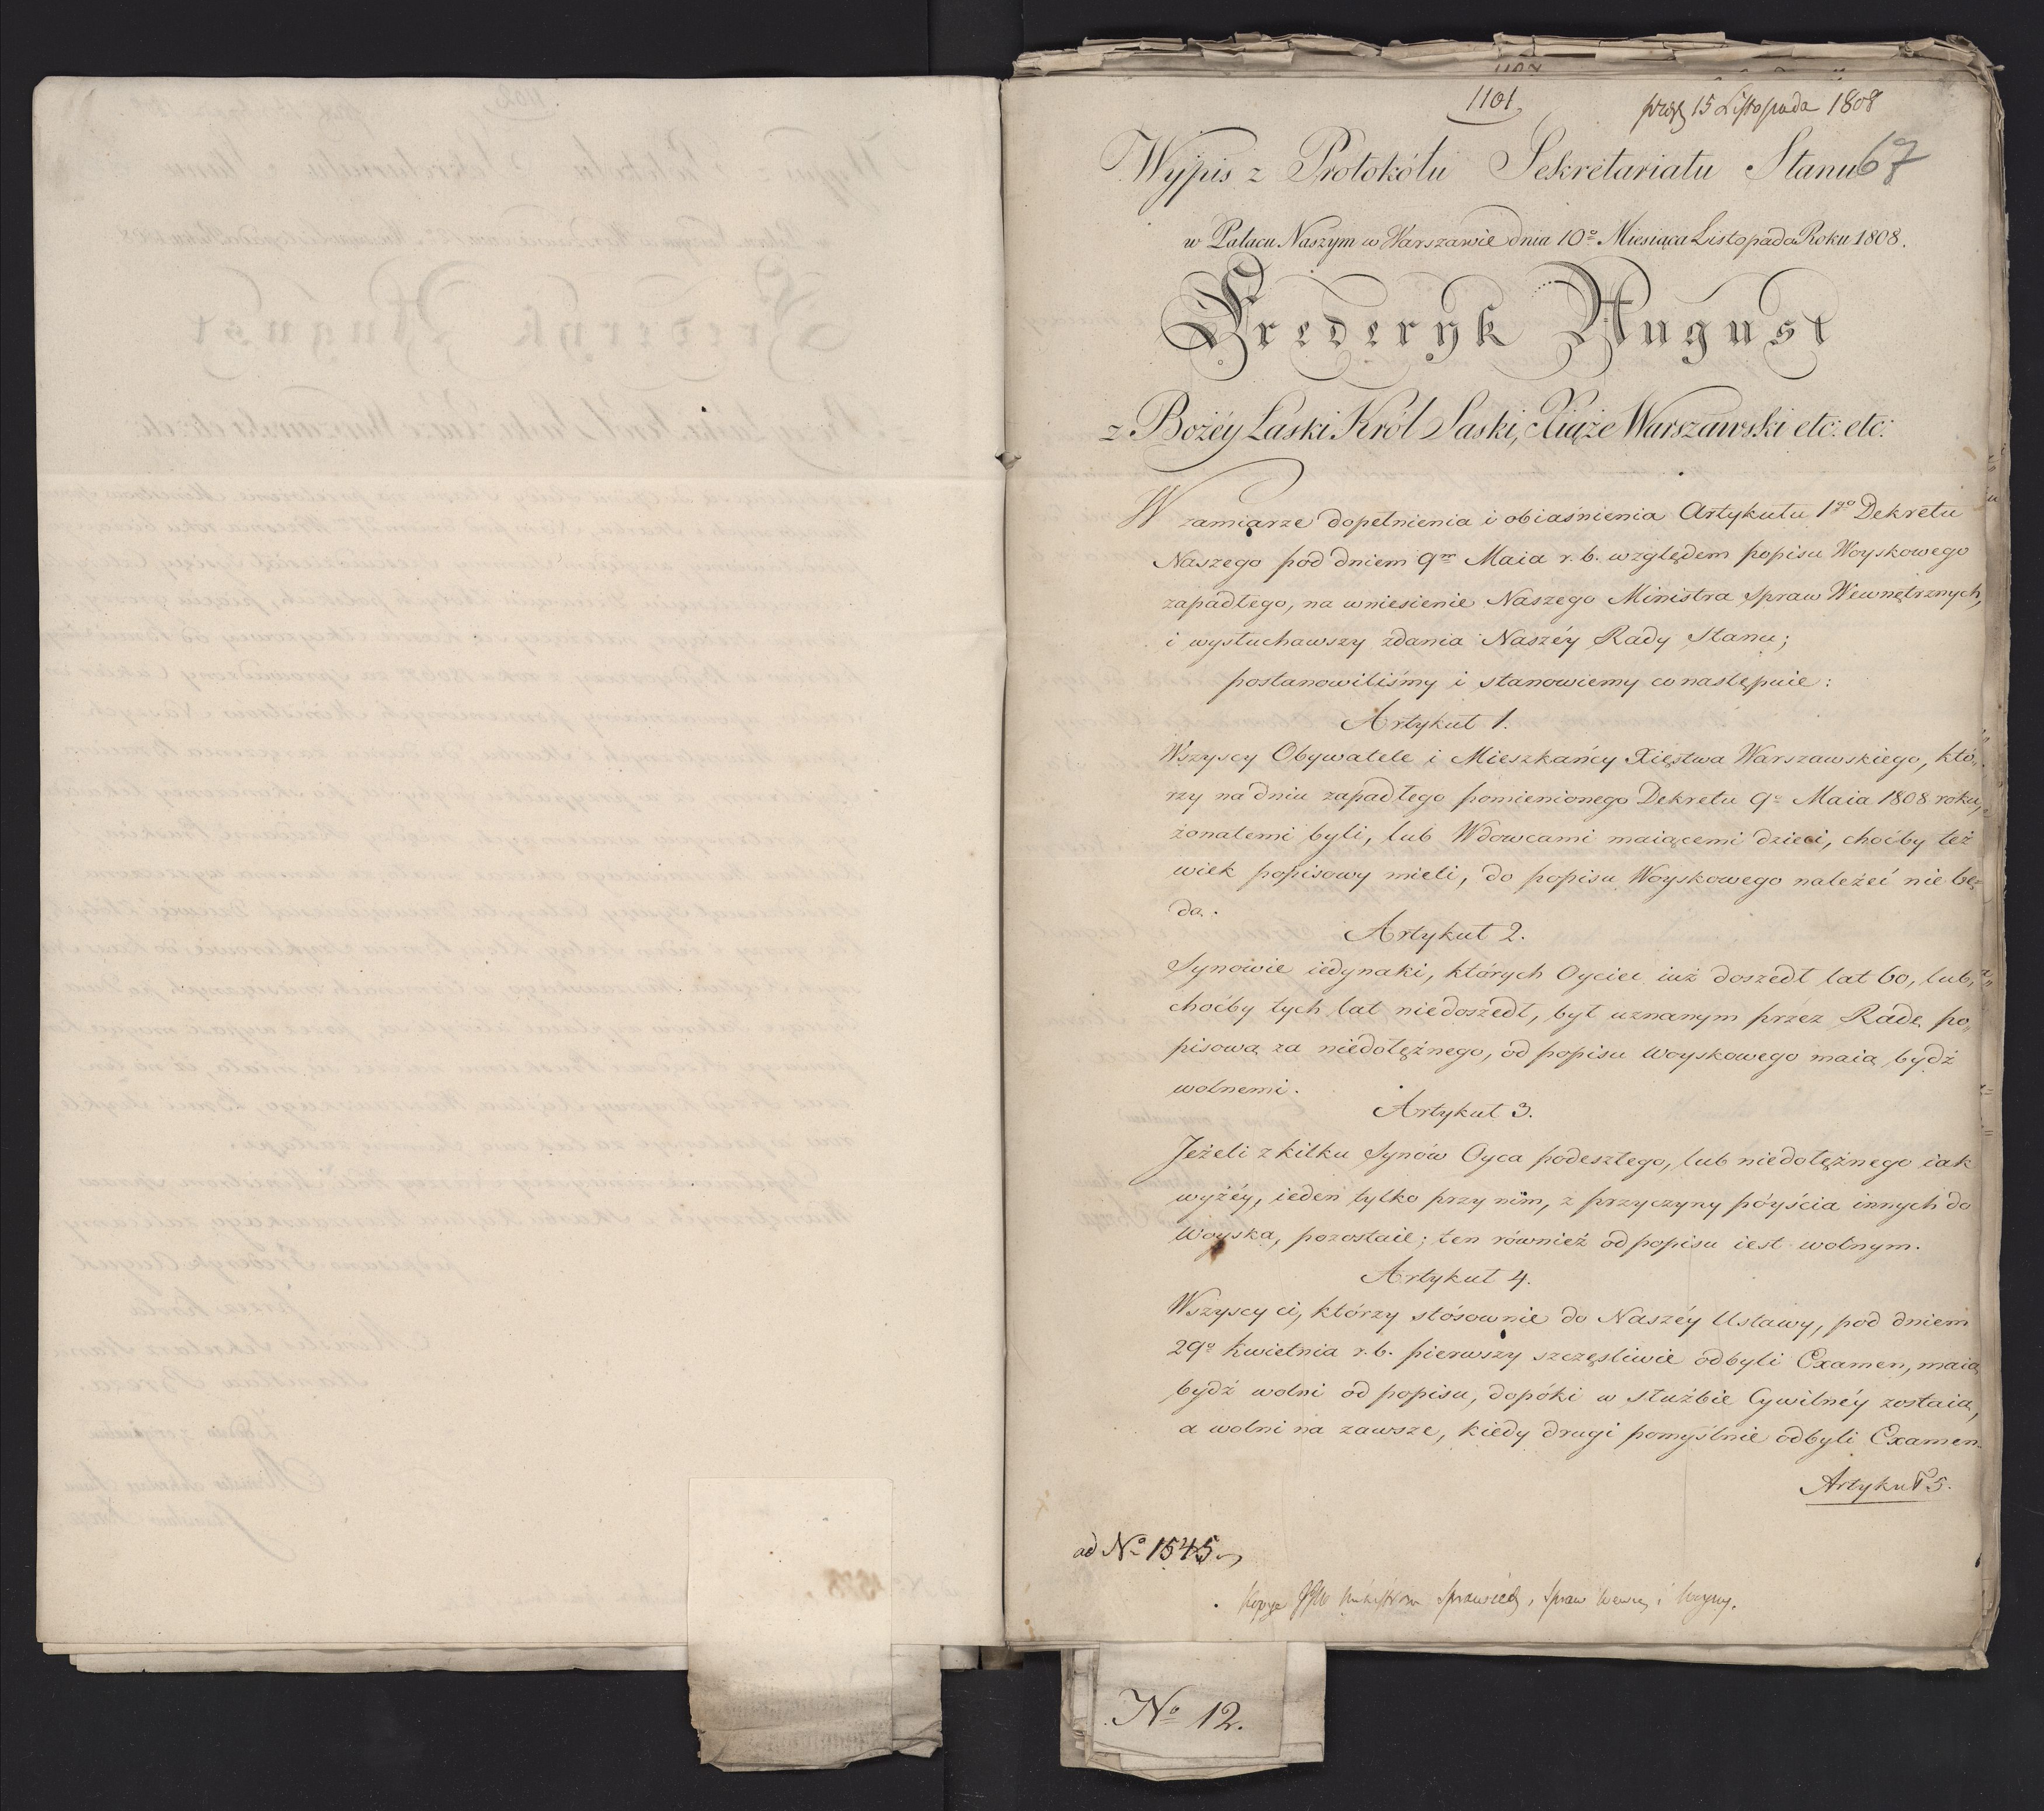 1101
15 Listopada 1808
Wypis z Protokółu Sekretariatu Stanu
67
w Pałacu Naszym w Warszawie dnia 10º Miesiąca Listopada Roku 1808.
Frederyk August
z Bożéy Łaski Król Saski, Xiąże Warszawski etc: etc:
W zamiarze dopełnienia i obiaśnienia Artykułu 1go Dekretu
Naszego pod dniem 9m Maia r. b. względem popisu Woyskowego
zapadłego, na wniesienie Naszego Ministra Spraw Wewnętrznych,
i wysłuchawszy zdania Naszéy Rady Stanu;
postanowiliśmy i stanowiemy co następuie:
Artykuł 1.
Wszyscy Obywatele i Mieszkańcy Xięstwa Warszawskiego, któ„
rzy na dniu zapadłego pomienionego Dekretu 9º Maia 1808 roku,
żonatemi byli, lub Wdowcami maiącemi dzieci, choćby też
wiek popisowy mieli, do popisu Woyskowego należeć nie bę=
dą.
Artykuł 2.
Synowie iedynaki, których Oyciec iuż doszedł lat 60, lub,
choćby tych lat niedoszedł, był uznanym przez Radę po„
pisową za niedołężnego, od popisu Woyskowego maią bydź
wolnemi.
Artykuł 3.
Jeżeli z kilku Synów Oyca podeszłego, lub niedołężnego iak
wyżéy, ieden tylko przy nim, z przyczyny póyścia innych do
Woyska, pozostaie; ten również od popisu iest wolnym.
Artykuł 4.
Wszyscy ci, którzy stósownie do Naszéy Ustawy, pod dniem
29º Kwietnia r. b. pierwszy szczęśliwie odbyli Examen, maią
bydź wolni od popisu, dopóki w służbie Cywilnéy zostaią,
a wolni na zawsze, kiedy drugi pomyślnie odbyli Examen.
Artykuł 5.
ad Nº 1545
Kopye Ministrom Sprawied, Spraw Wewn, i Woyny.
Nº 12.